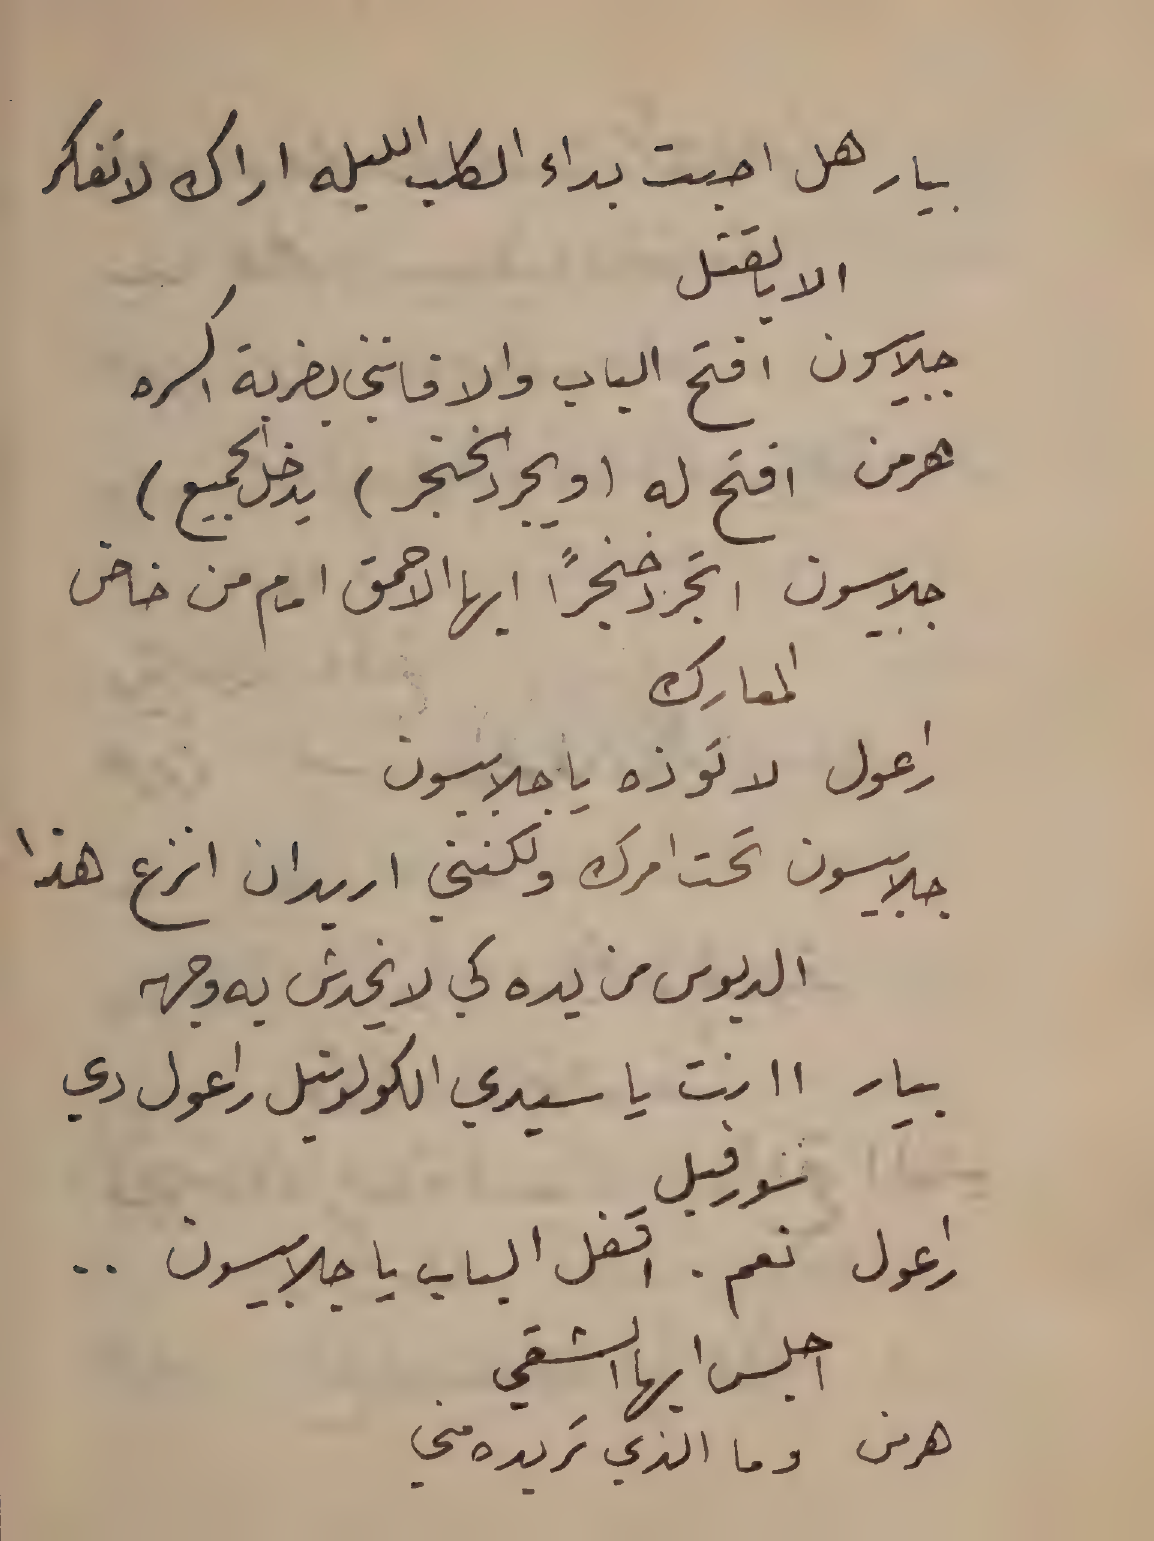 بيار هل اصبت بداء الكلب الليله اراك لا تفكر
الا بالقتل
جلابيسون افتح الباب والا فانني بضربة اكسره
هرمن افتح له (ويجرد الخنجر) يدخل الجميع)
جلابيسون اتجرد خنجرًا ايها الاحمق امام من خاض
المعارك
راعول لا توذه يا جلابيسون
جلابيسون تحت امرك ولكنني اريد ان انزع هذا
الدبوس من يده كي لا يخدش به وجهه
بيار اانت يا سيدي الكولونيل راعول دي
سورفيل
راعول نعم . اقفل الباب يا جلابيسون ..
اجلس ايها الشقي
هرمن وما الذي تريده مني